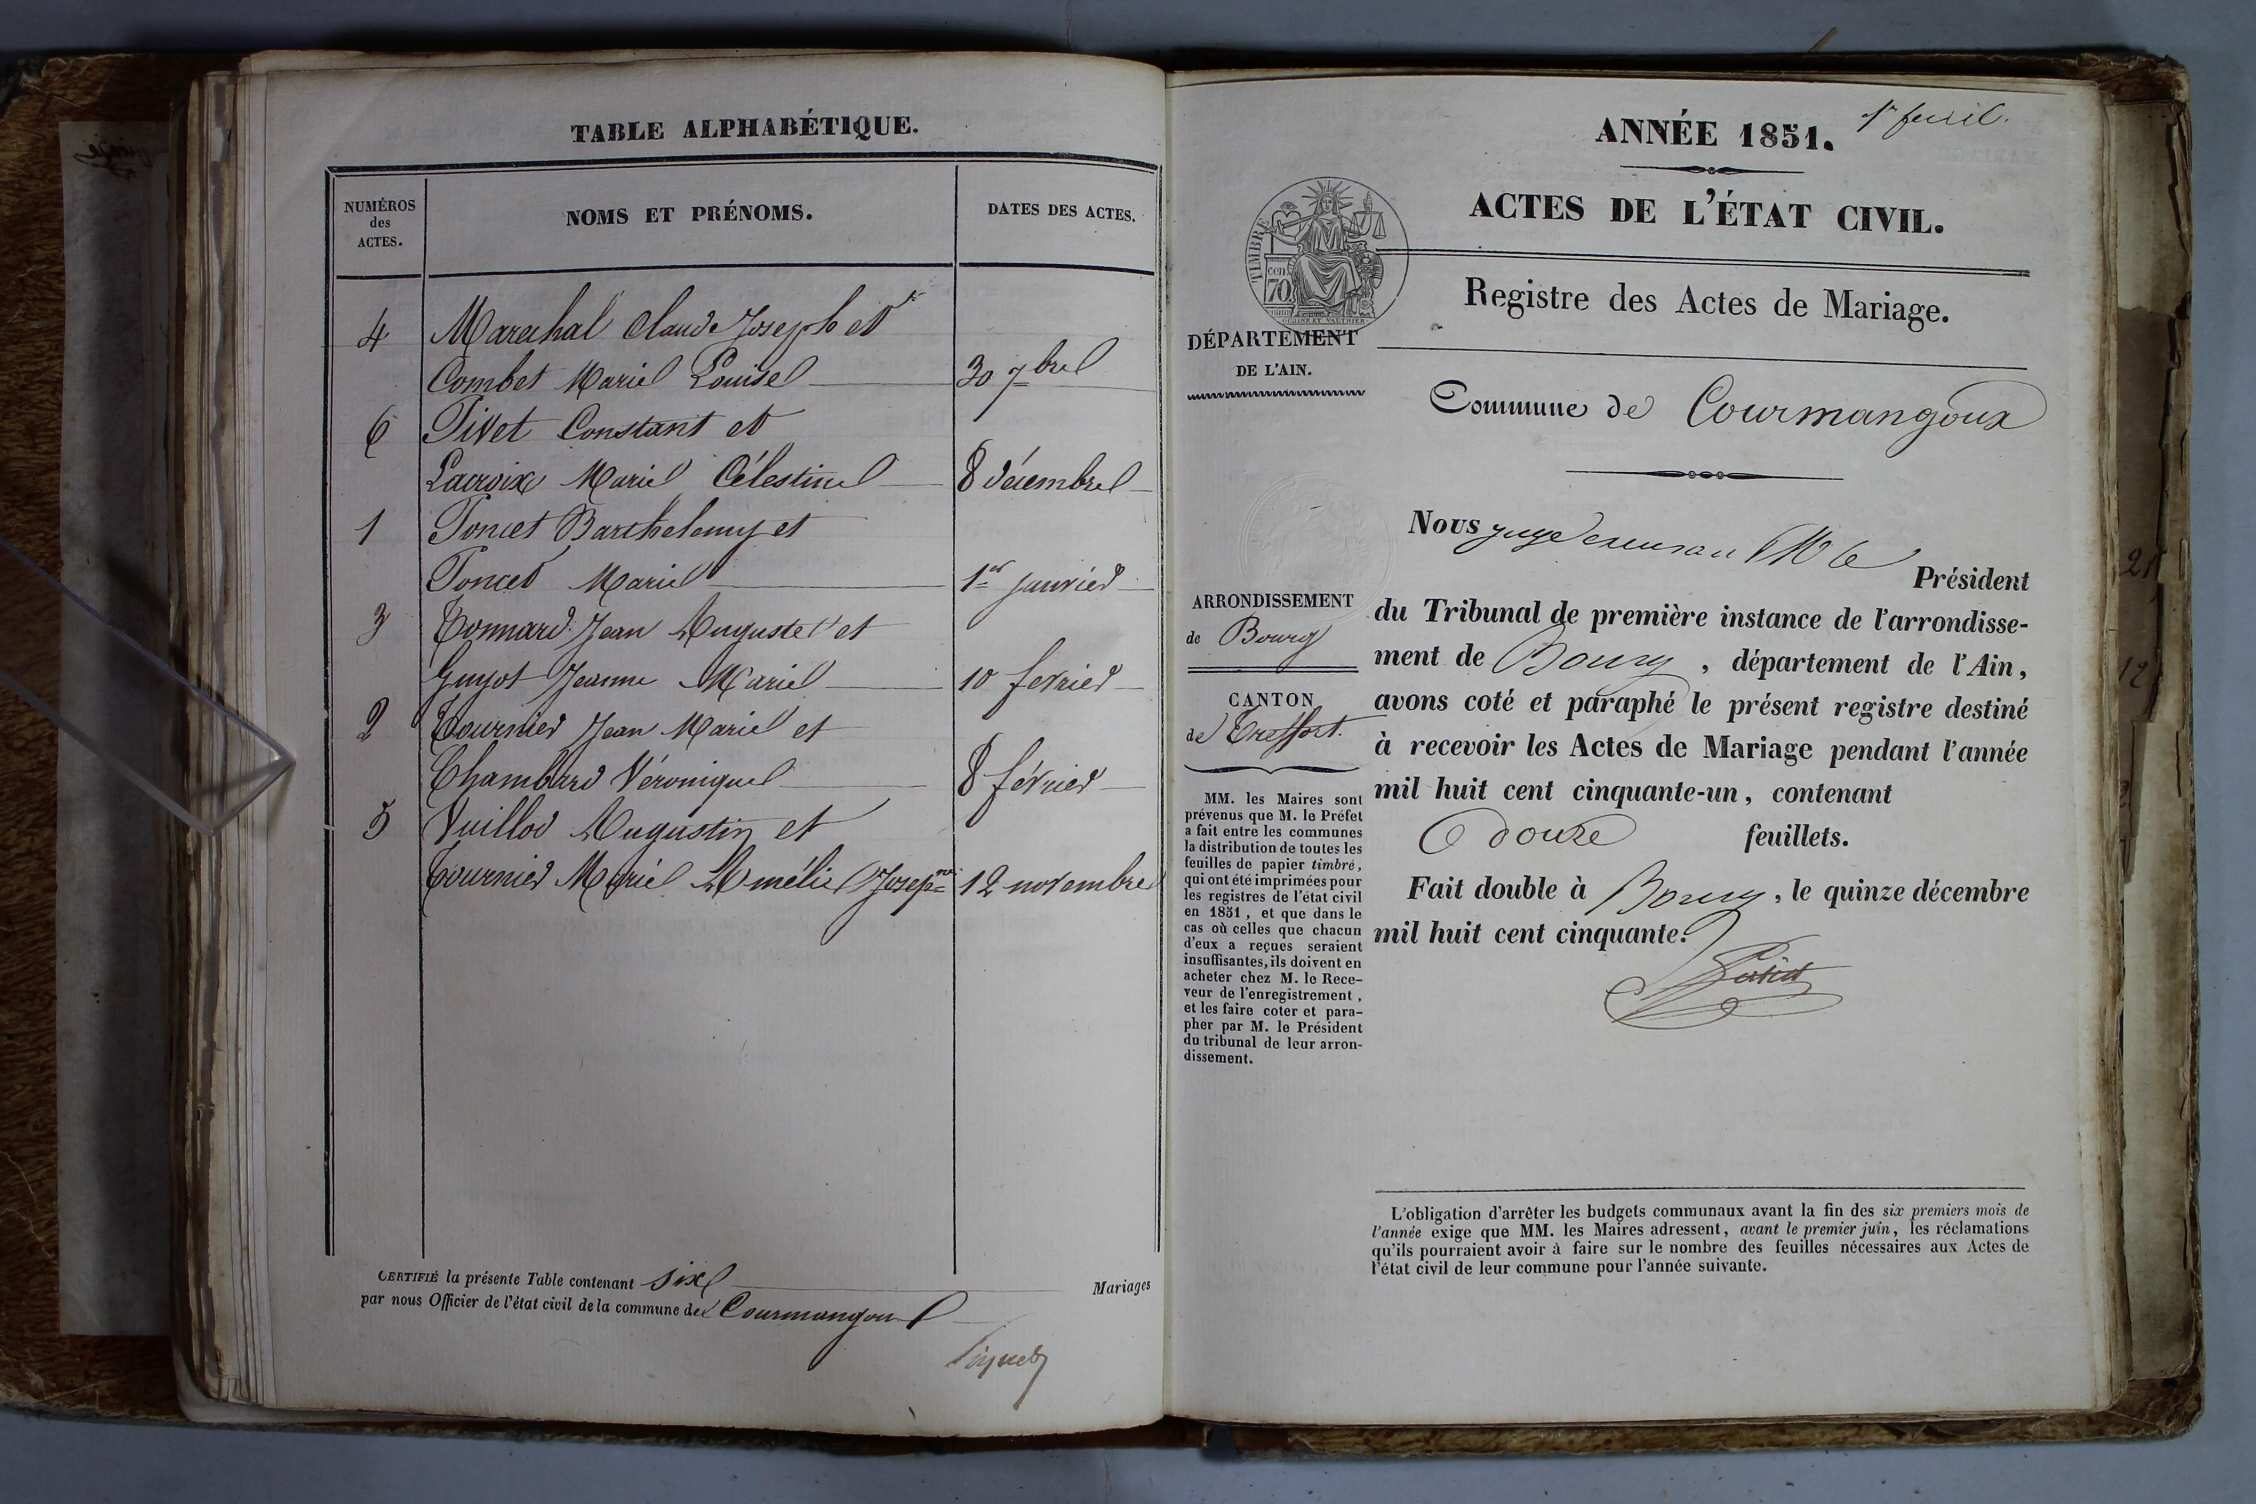 TABLE ALPHABÉTIQUE.
NUMÉROS
des
ACTES.
NOMS ET PRÉNOMS.
DATES DES ACTES.
4 Marechal Claude Joseph et
Combet Marie Louise 30 7bre
6 Pivet Constant et
Lacroix Marie Célestine 8 décembre
1 Poncet Barthelemy et
Poncet Marie 1er janvier
3 Bonnard Jean Auguste et
Guyot Jeanne Marie 10 février
2 Tournier Jean Marie et
Chambard Véronique 8 février
5 Vuillod Augustin et
Tournier Marie Amélie Josepne 12 novembre
CERTIFIÉ la présente Table contenant six Mariages
par nous Officier de l'état civil de la commune de Courmangoux
ANNÉE 1851.
1er feuil.
ACTES DE L'ÉTAT CIVIL.
TIMBRE
70
Registre des Actes de Mariage.
DÉPARTEMENT
DE L'AIN.
Commune de Courmangoux
Nous juge
Président
ARRONDISSEMENT
de Bourg
CANTON
de Treffort.
du Tribunal de première instance de l'arrondisse-
ment de Bourg, département de l'Ain,
avons coté et paraphé le présent registre destiné
à recevoir les Actes de Mariage pendant l'année
mil huit cent cinquante-un, contenant
douze feuillets.
Fait double à Bourg, le quinze décembre
mil huit cent cinquante.
MM. les Maires sont
prévenus que M. le Préfet
a fait entre les communes
la distribution de toutes les
feuilles de papier timbré,
qui ont été imprimées pour
les registres de l'état civil
en 1851, et que dans le
cas où celles que chacun
d'eux a reçues seraient
insuffisantes, ils doivent en
acheter chez M. le Rece-
veur de l'enregistrement,
et les faire coter et para-
pher par M. le Président
du tribunal de leur arron-
dissement.
L'obligation d'arrêter les budgets communaux avant la fin des six premiers mois de
l'année exige que MM. les Maires adressent, avant le premier juin, les réclamations
qu'ils pourraient avoir à faire sur le nombre des feuilles nécessaires aux Actes de
l'état civil de leur commune pour l'année suivante.